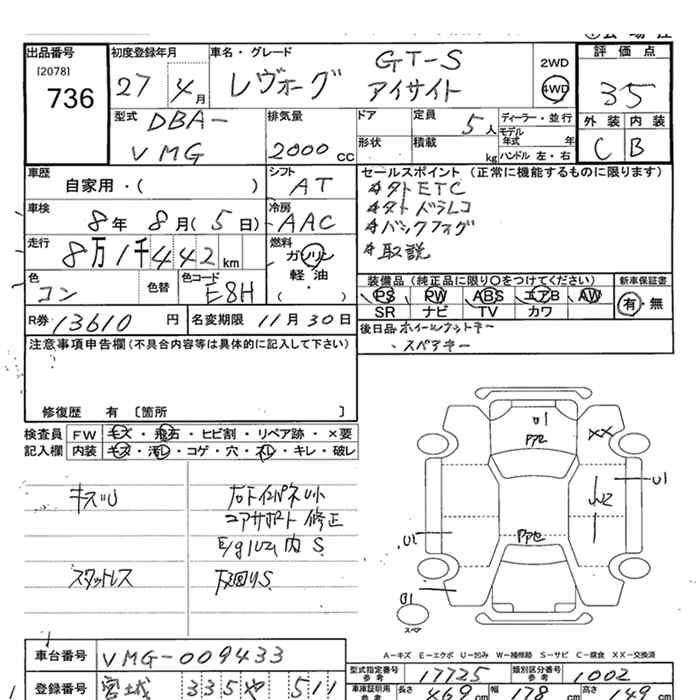 出品番号
[2078]
736
初度登録年月
27 4月
車名・グレード
レヴォーグ GT-S アイサイト
2WD
4WD
評価点
35
外装 内装
C B
型式
DBA-
VMG
排気量
2000cc
ドア
定員
5人
形状
積載
kg
ディーラー・並行
モデル年式 年
ハンドル 左・右
車歴
自家用・( )
シフト
AT
車検
8年 8月(5日)
冷房
AAC
走行
8万1千442km
燃料
ガソリン
軽油
( ・ )
色
コン
色替
色コード
E8H
R券 13610円
名変期限 11月30日
セールスポイント(正常に機能するものに限ります)
ETC
ドラレコ
取説
装備品(純正品に限り○をつけてください)
PS PW ABS エアB AW
SR ナビ TV カワ
新車保証書
有・無
後日品 ホイールナットキー
、スペアキー
注意事項申告欄(不具合内容等は具体的に記入して下さい)
修復歴 有 〔箇所 〕
検査員記入欄
FW キズ・飛石・ヒビ割・リペア跡・×要
内装 キズ・汚レ・コゲ・穴・スレ・キレ・破レ
キズU
コアサポート修正
スタットレス
U1
XX
U1
W2
U1
スペア
A-キズ E-エクボ U-凹み W-補修跡 S-サビ C-腐食 XX-交換済
車台番号 VMG-009433
登録番号 宮城 335 や 511
型式指定番号 参考 17725
類別区分番号 参考 1002
車庫証明用 参考
長さ 469cm 幅 178cm 高さ 149cm